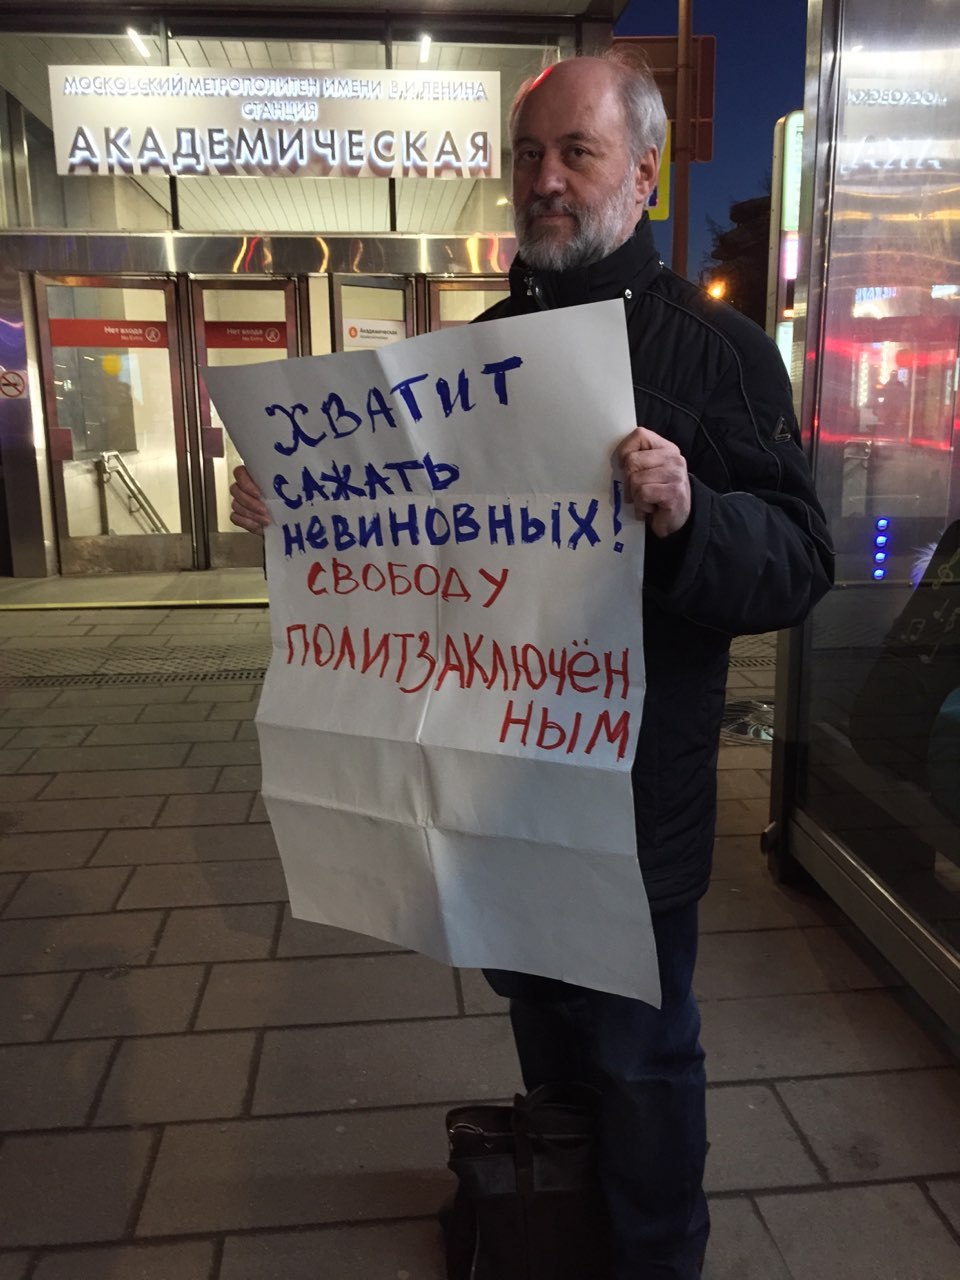 МОСКОВСКИЙ МЕТРОПОЛИТЕН ИМЕНИ В.И.ЛЕНИНА
СТАНЦИЯ
АКАДЕМИЧЕСКАЯ
Нет входа
No Entry
Нет входа
No Entry
6 Академическая
ХВАТИТ
САЖАТЬ
НЕВИНОВНЫХ!
СВОБОДУ
ПОЛИТЗАКЛЮЧЁН
НЫМ